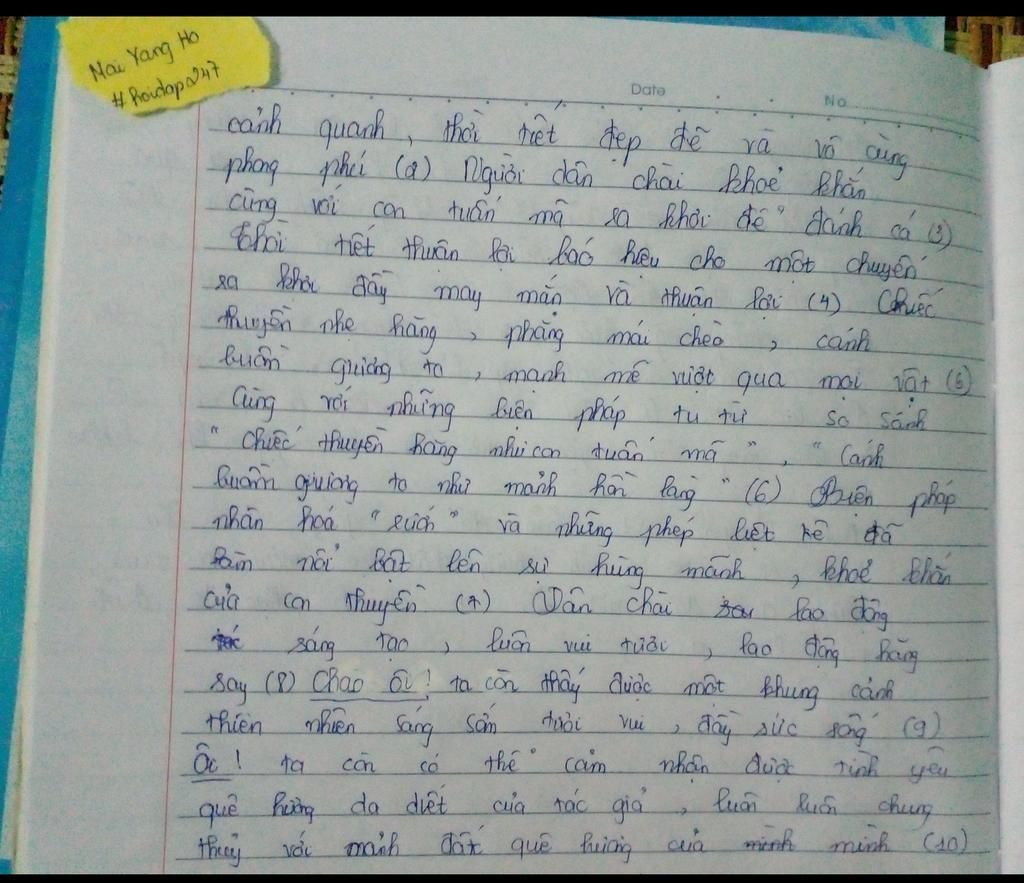 Mai Yang Ho
#hoidap247
Date
No
cảnh quanh, thời tiết đẹp đẽ và vô cùng
phong phú (2) Người dân chài khoẻ khắn
cùng với con tuấn mã ra khơi để đánh cá (3)
Thời tiết thuân lợi báo hiệu cho một chuyến
ra khơi đầy may mắn và thuận lợi (4) Chiếc
thuyền nhẹ hăng, phăng mái chèo, cánh
buồm giương to, mạnh mẽ vượt qua mọi vật (5)
Cùng với những biện pháp tu từ so sánh
"chiếc thuyền hăng như con tuấn mã", "Cánh
buồm giương to như mảnh hồn làng" (6) Biện pháp
nhân hoá "rướn" và những phép liệt kê đã
làm nổi bật lên sự hùng mãnh, khoẻ khắn
của con thuyền (7) Dân chài lao động
sáng tạo, luôn vui tươi, lao động hăng
say (8) Chao ôi! ta còn thấy được một khung cảnh
thiên nhiên sáng sớm tươi vui, đầy sức sống (9)
Ôi! ta còn có thể cảm nhận được tình yêu
quê hương da diết của tác giả, luôn luôn chung
thuỷ với mảnh đất quê hương của minh mình (10)